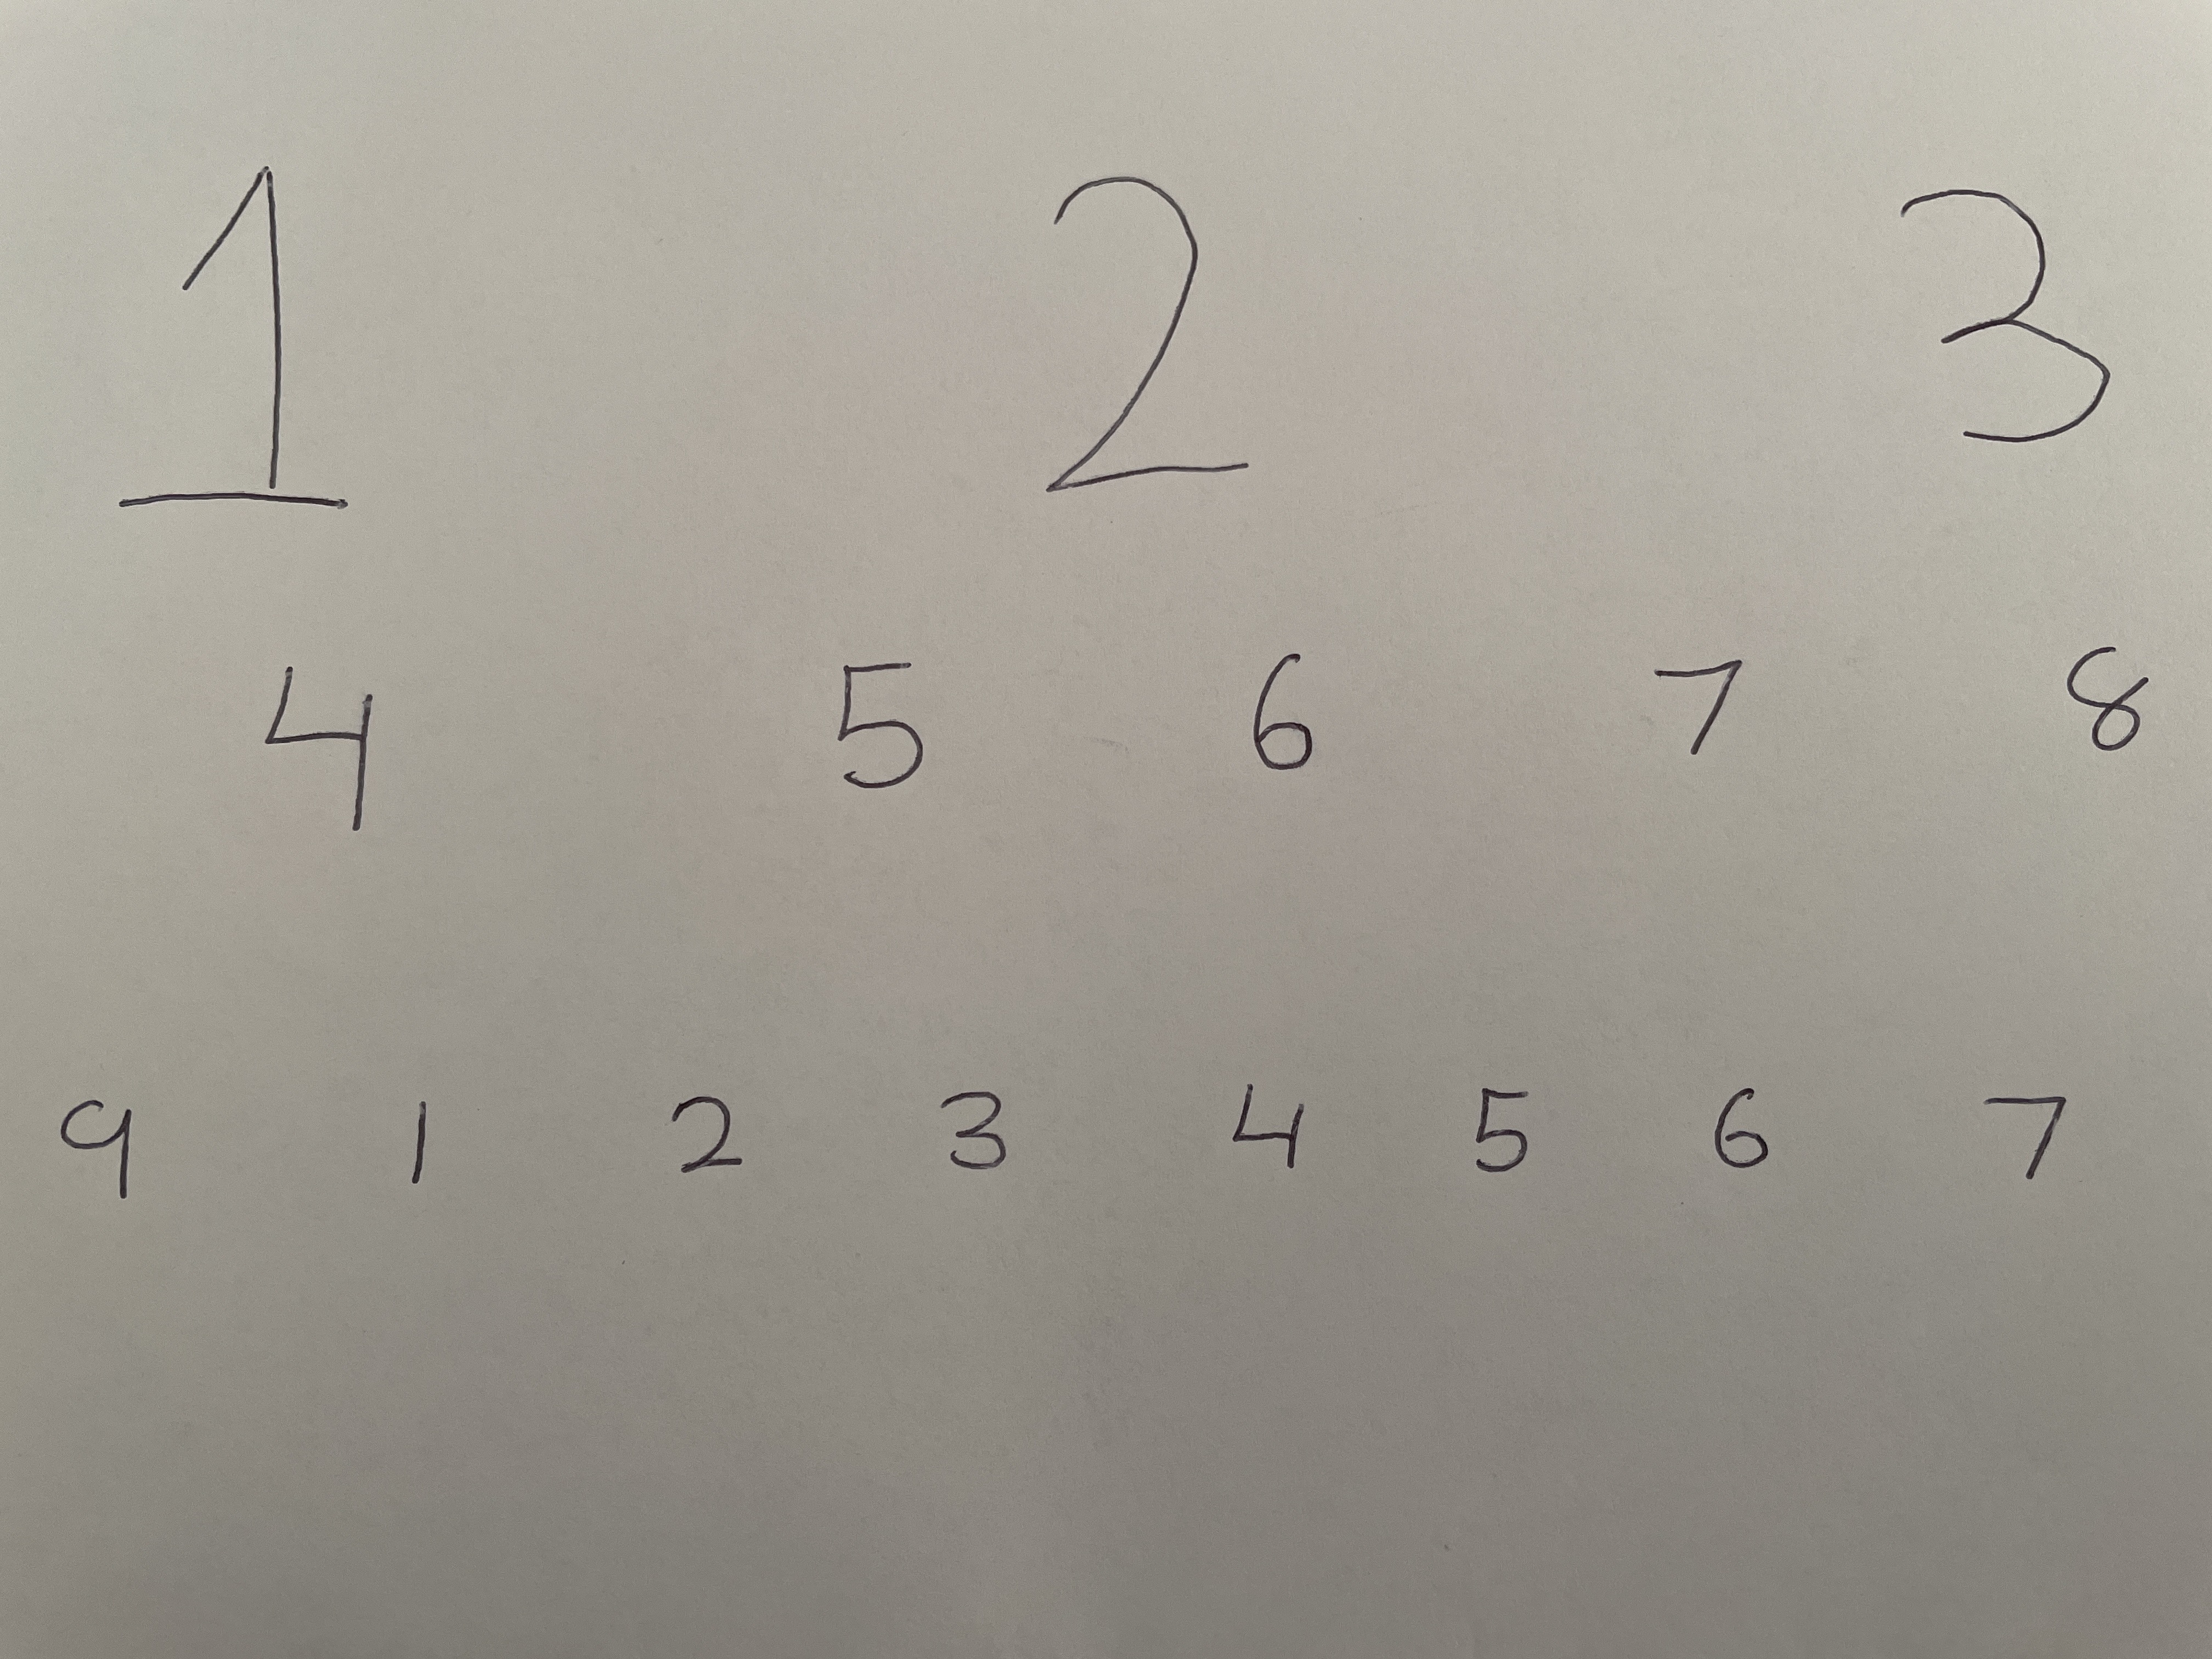 1 2 3
4 5 6 7 8
9 1 2 3 4 5 6 7